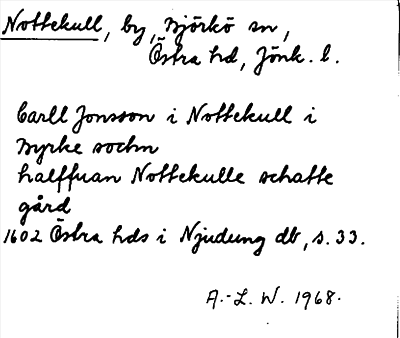 Nottekull, by, Björkö sn,
Östra hd, Jönk. l.
Carll Jonsson i Nottekull i
Byrke sochn
halffuan Nottekulle schatte
gård
1602 Östra hds i Njudung db, s. 33.
A.-L. W. 1968.